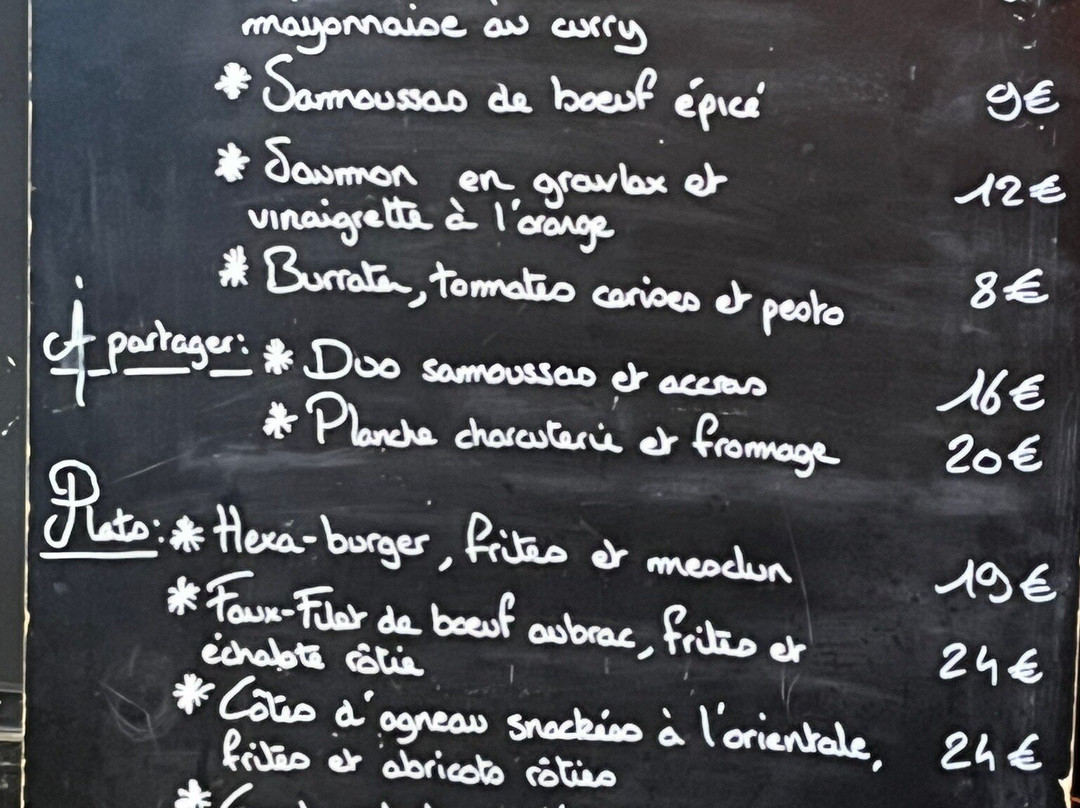 mayonnaise au curry
* Samoussas de boeuf épicé 9€
* Saumon en gravlax et 12€
vinaigrette à l'orange
* Burrata, tomates cerises et pesto 8€
À partager: * Duo samoussas et accras 16€
* Planche charcuterie et fromage 20€
Plats: * Hexa-burger, frites et mesclun 19€
* Faux-Filet de boeuf aubrac, frites et
échalote rôtie 24€
* Côtes d'agneau snackées à l'orientale, 24€
frites et abricots rôties